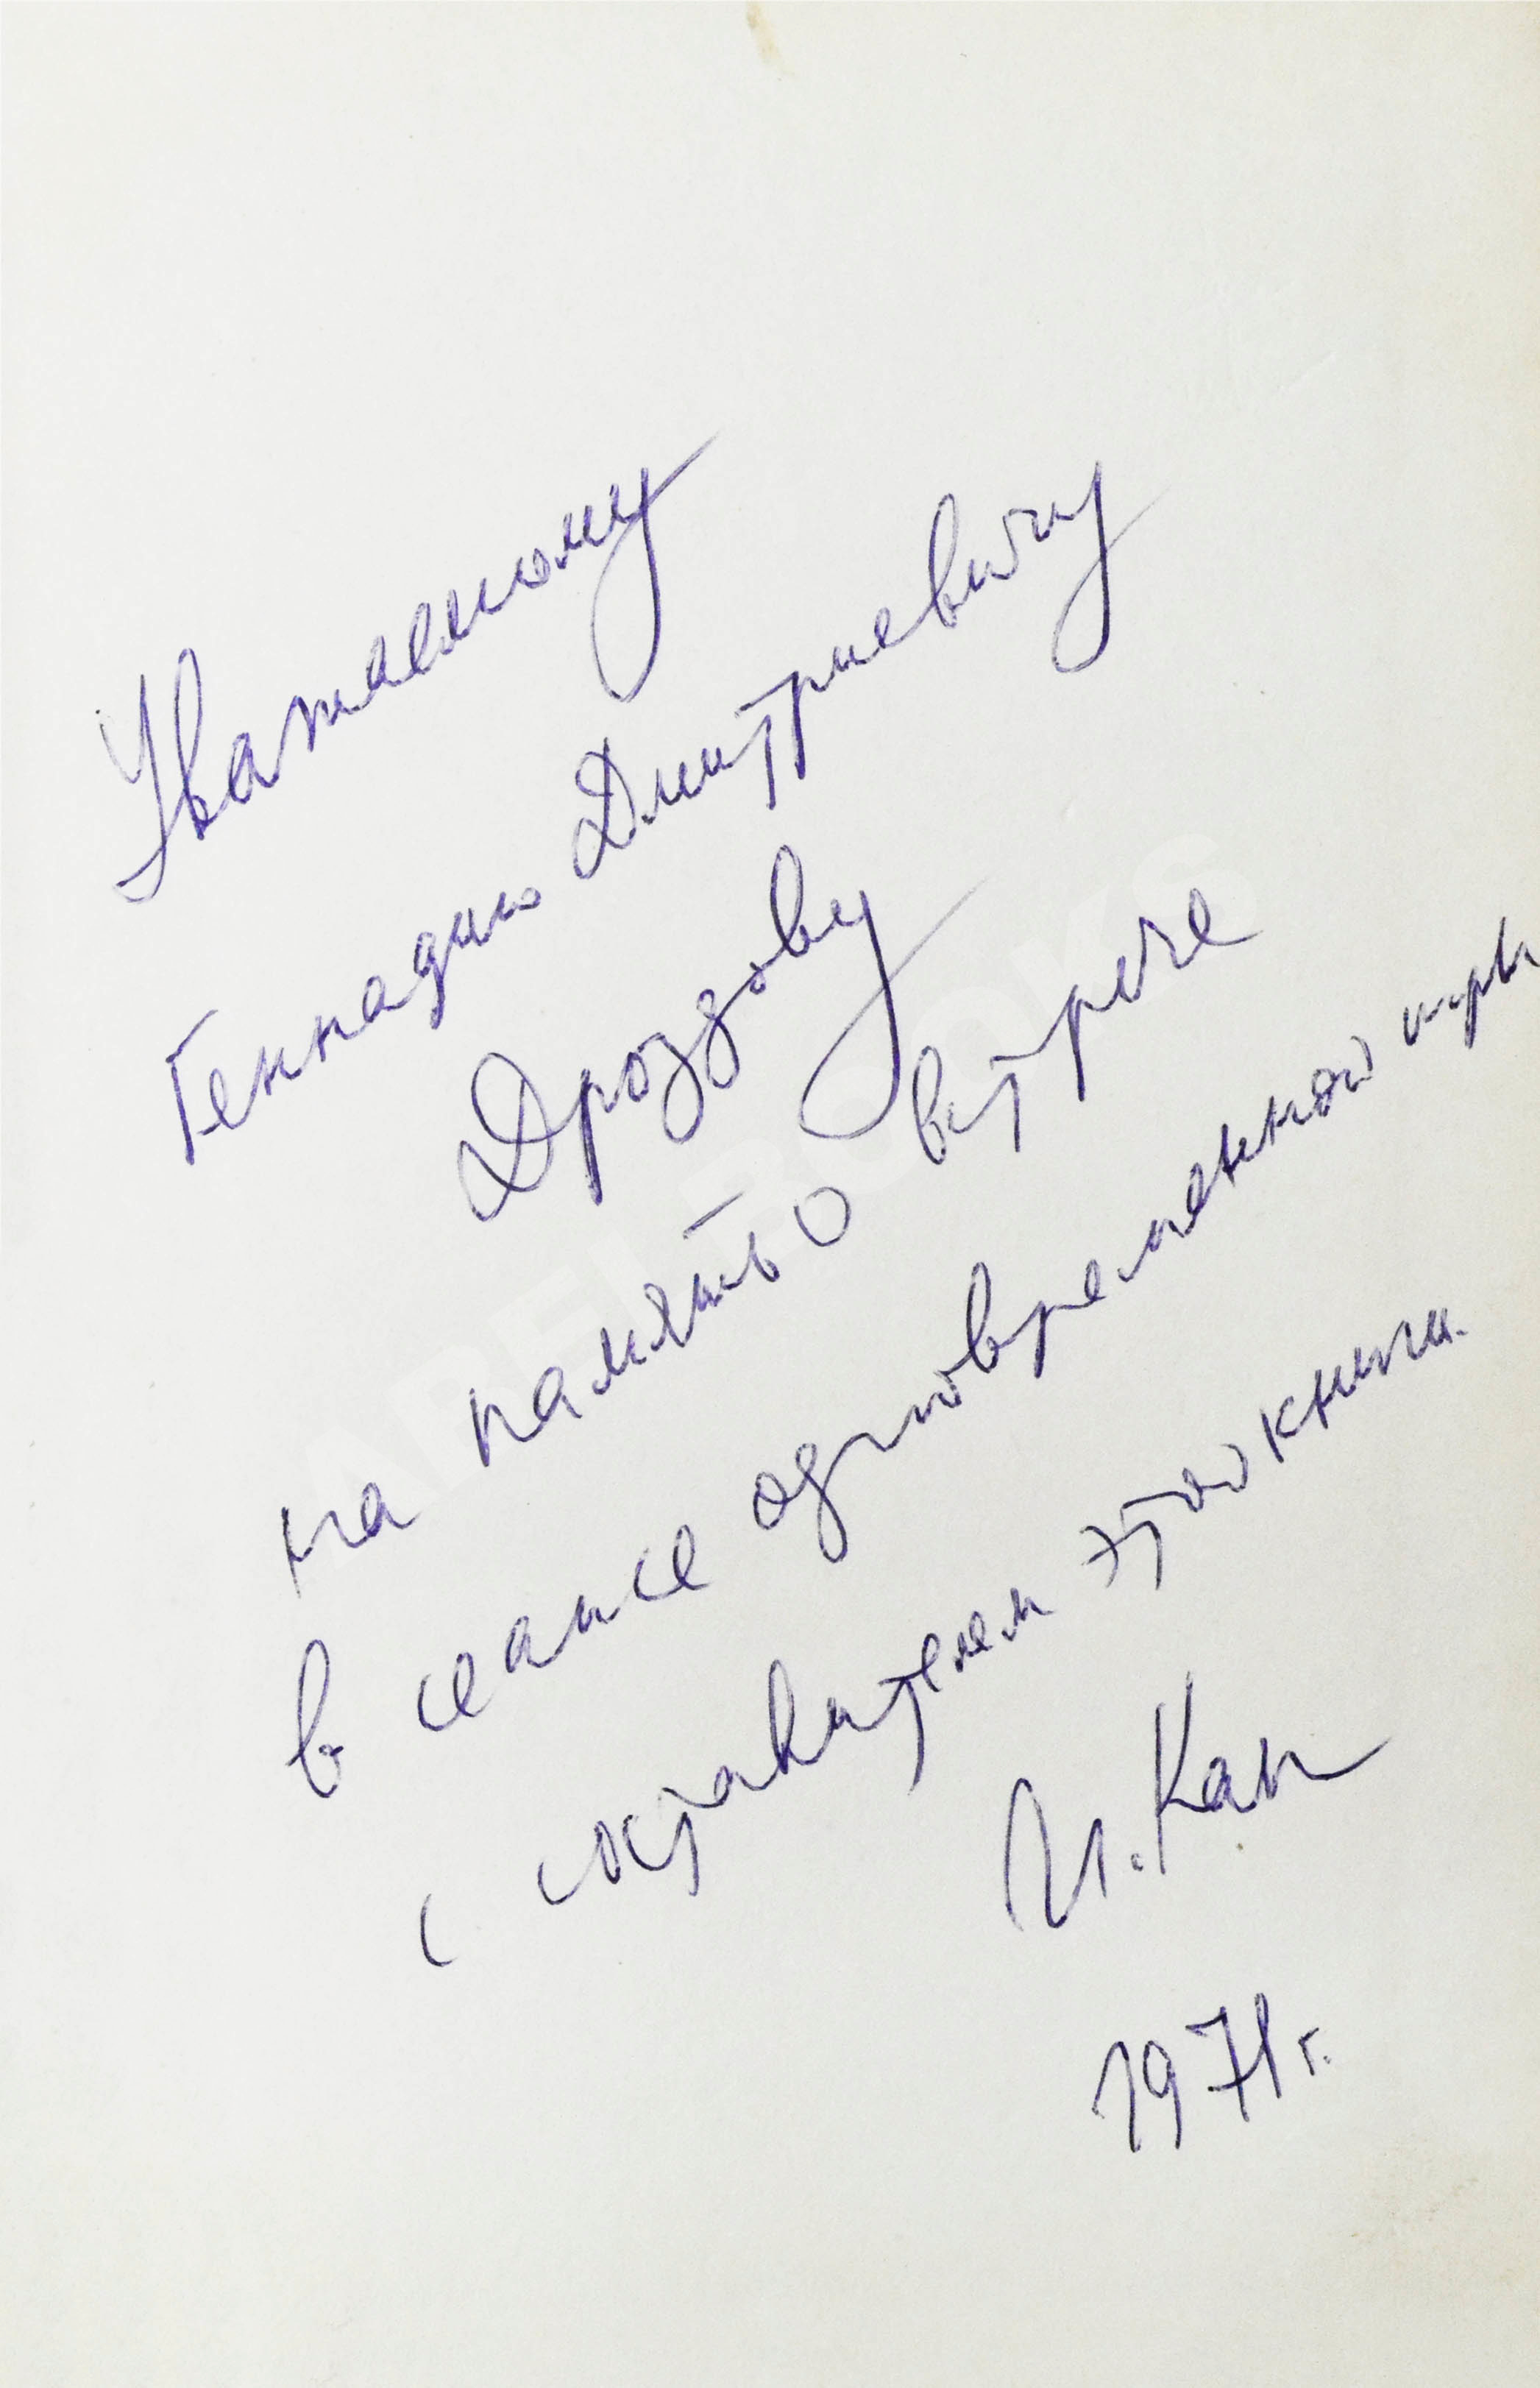 Уважаемому
Геннадию Дмитриевичу
Дроздову
на память о встрече
в сеансе одновременной игры
с составителем этой книги.
И. Кан
1971 г.